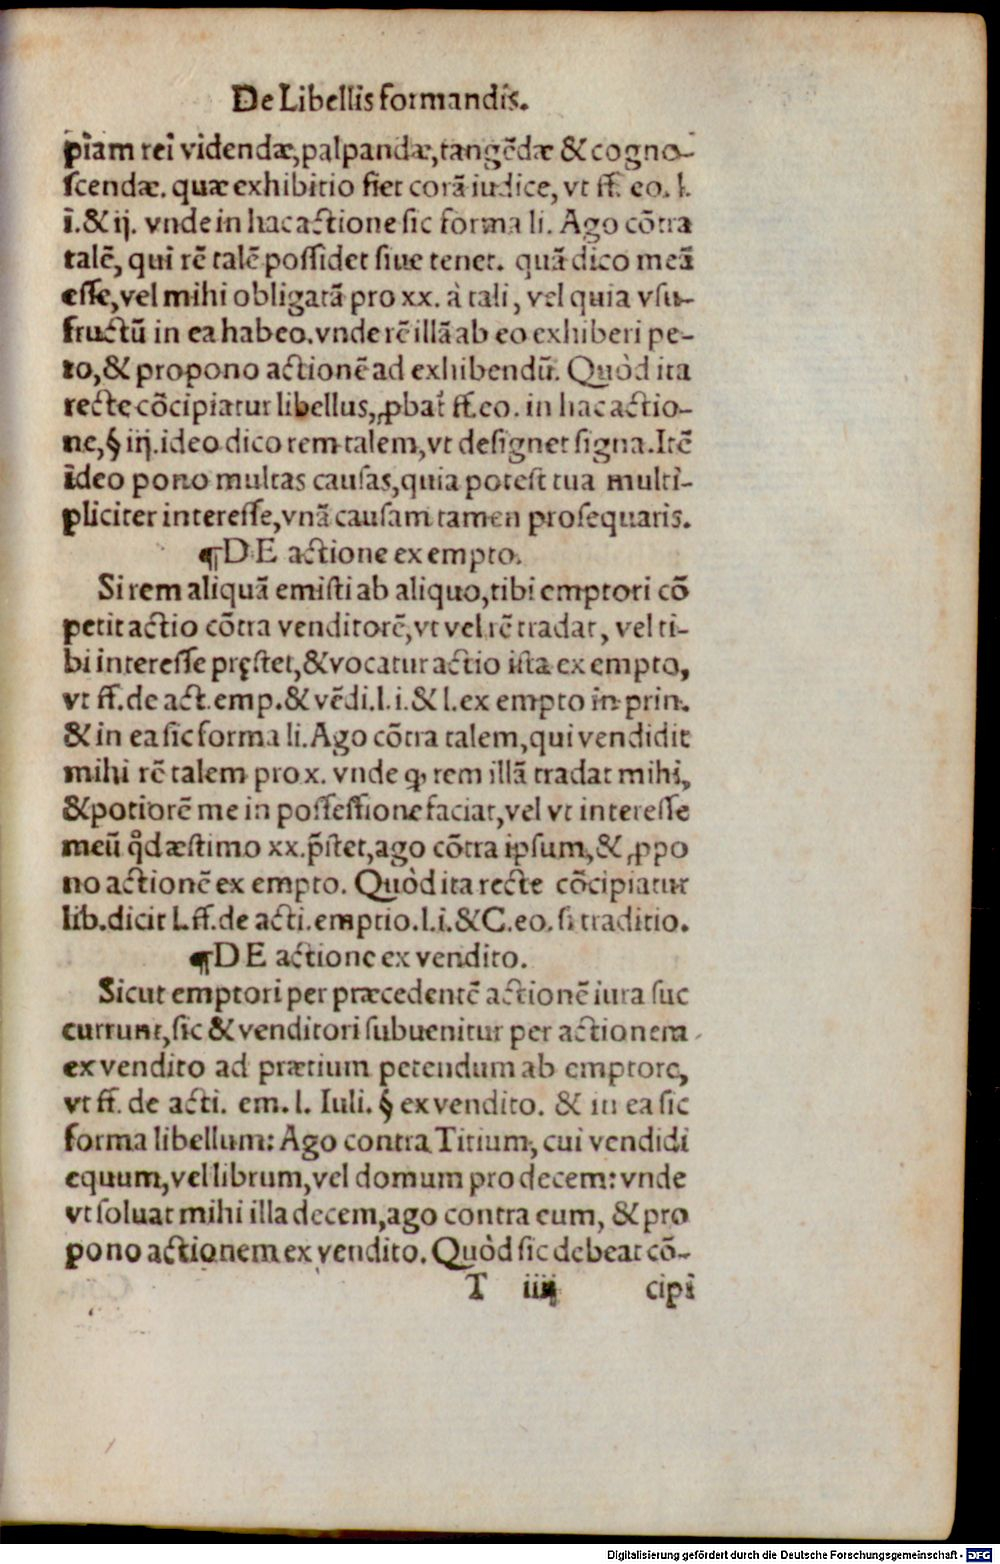 De Libellis formandis.
piam rei videndæ, palpandæ, tangēdæ & cogno-
scendæ. quæ exhibitio fiet corā iudice, vt ff. eo. l.
i. & ij. vnde in hac actione sic forma li. Ago cōtra
talē, qui rē talē possidet siue tenet. quā dico meā
esse, vel mihi obligatā pro xx. à tali, vel quia vsu-
fructū in ea habeo. vnde rē illā ab eo exhiberi pe-
to, & propono actionē ad exhibendū. Quòd ita
recte cōcipiatur libellus, ꝓbat ff. eo. in hac actio-
ne, § iij. ideo dico rem talem, vt designet signa. Itē
ideo pono multas causas, quia potest tua multi-
pliciter interesse, vnā causam tamen prosequaris.
¶ DE actione ex empto.
Si rem aliquā emisti ab aliquo, tibi emptori cō
petit actio cōtra venditorē, vt vel rē tradat, vel ti-
bi interesse pręstet, & vocatur actio ista ex empto,
vt ff. de act. emp. & vēdi. l. i. & l. ex empto in prin.
& in ea sic forma li. Ago cōtra talem, qui vendidit
mihi rē talem pro x. vnde ꝙ rem illā tradat mihi,
& potiorē me in possessione faciat, vel vt interesse
meū qd̄ æstimo xx. p̄stet, ago cōtra ipsum, & ꝓpo
no actionē ex empto. Quòd ita recte cōcipiatur
lib. dicit l. ff. de acti. emptio. l. i. & C. eo. si traditio.
¶ DE actione ex vendito.
Sicut emptori per præcedentē actionē iura suc
currunt, sic & venditori subuenitur per actionem
ex vendito ad prætium petendum ab emptore,
vt ff. de acti. em. l. Iuli. § ex vendito. & in ea sic
forma libellum: Ago contra Titium, cui vendidi
equum, vel librum, vel domum pro decem: vnde
vt soluat mihi illa decem, ago contra eum, & pro
pono actionem ex vendito. Quòd sic debeat cō-
T iiij cipi
Digitalisierung gefördert durch die Deutsche Forschungsgemeinschaft - DFG